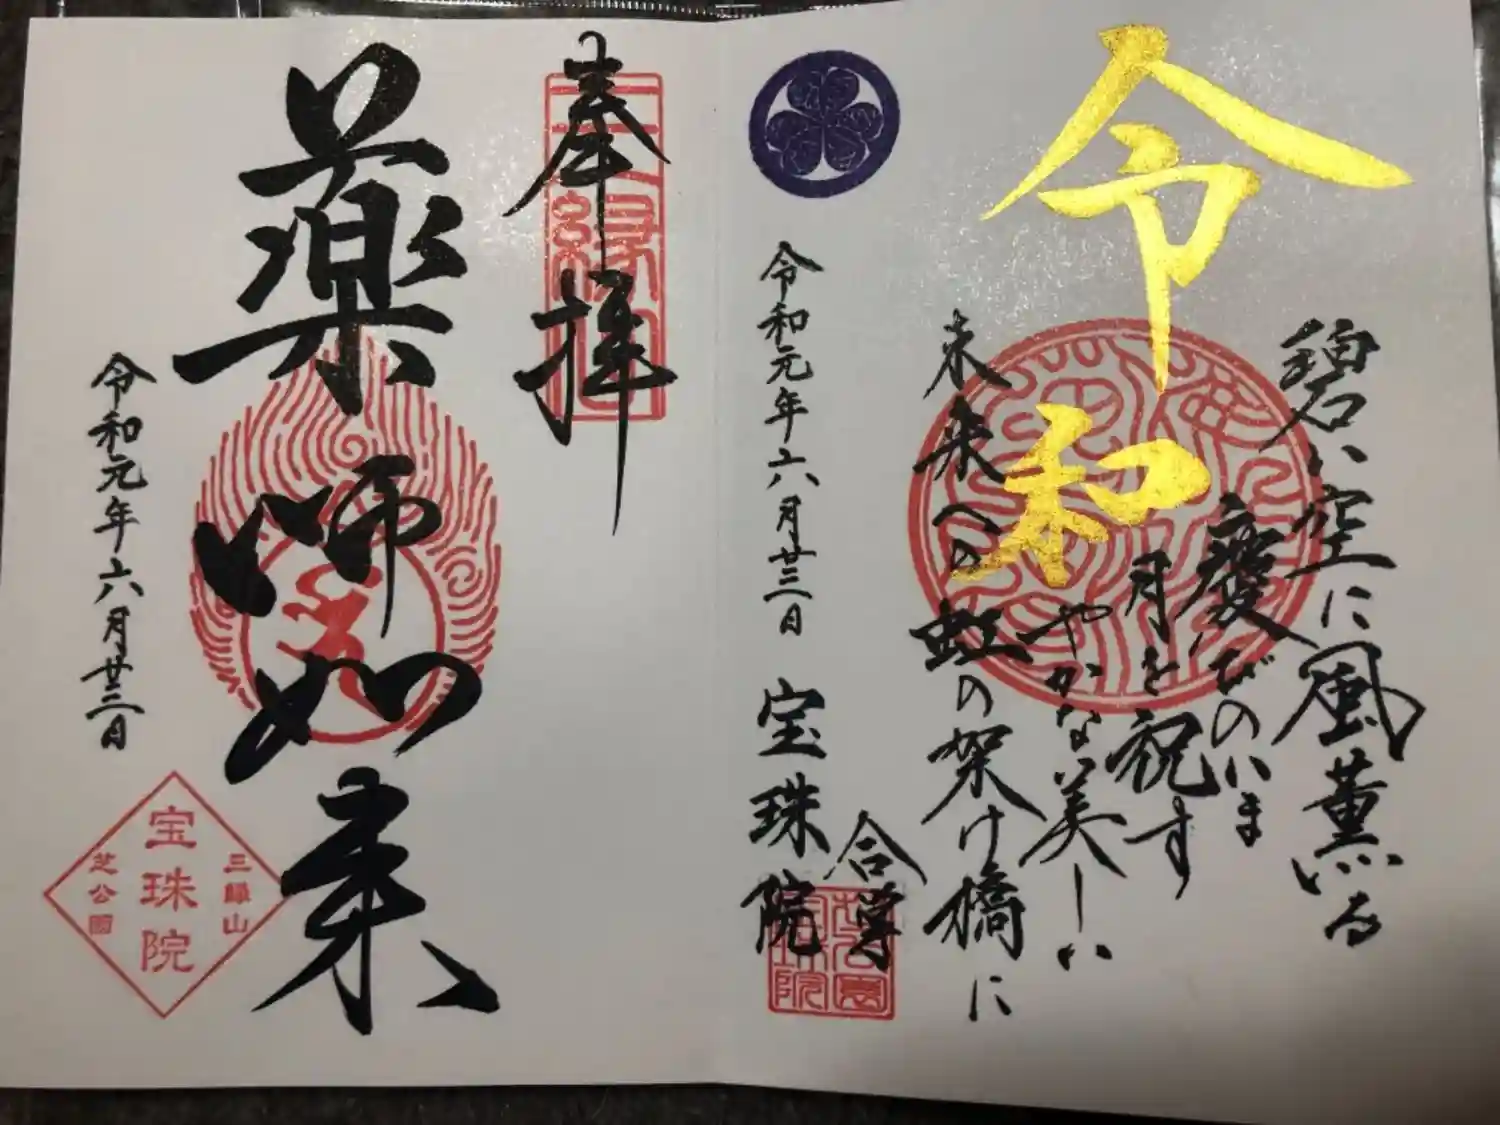 令和
碧い空に風薫る
慶びのいま
月を祝す
やかな美しい
未来への虹の架け橋に
令和元年六月廿三日
宝珠院
合掌
奉拝
薬師如来
令和元年六月廿三日
三縁山
宝珠院
芝公園